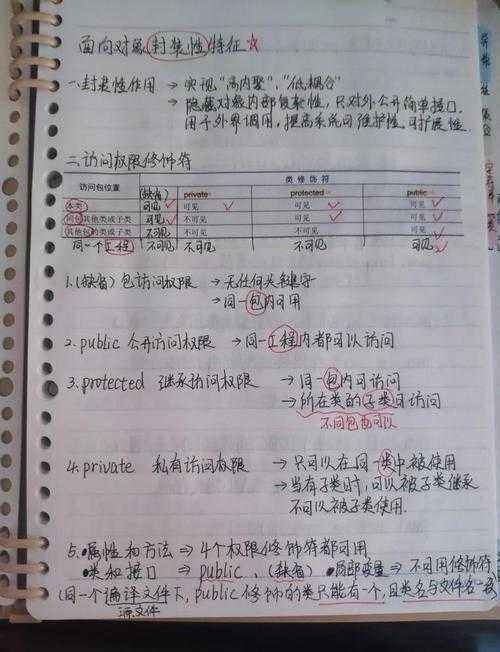 面向对象封装性特征☆
一.封装性作用 → 实现"高内聚","低耦合"
→ 隐藏对象内部复杂性,只对外公开简单接口.
用于外界调用,提高系统可维护性.可扩展性.
二.访问权限修饰符
访问包位置 类修饰符
(缺省) private protected public
本类 可见✓ 可见✓ 可见✓ 可见✓
同包其他类或子类 可见✓ 不可见 可见✓ 可见✓
其他包的类或子类 不可见 不可见 可见 可见✓
同一个工程 不可见 不可见 不可见 可见✓
1.(缺省)包访问权限 → 无任何关键字
→ 同一包内可用
2. public 公开访问权限 → 同一工程内都可以访问
3. protected 继承访问权限 → 同一包内可访问
→ 所在类的子类可访问
不同包也可以
4. private 私有访问权限 → 只可以在同一类中被使用
→ 当有子类时,可以被子类继承
不可以被子类使用.
5.•属性和方法 ⇒ 4个权限修饰符都可用,
•类和接口 ⇒ public、(缺省) •局部变量 ⇒ 不可用修饰符
(同一个编译文件下, public修饰的类只能有一个,且类名与文件名一致
源文件